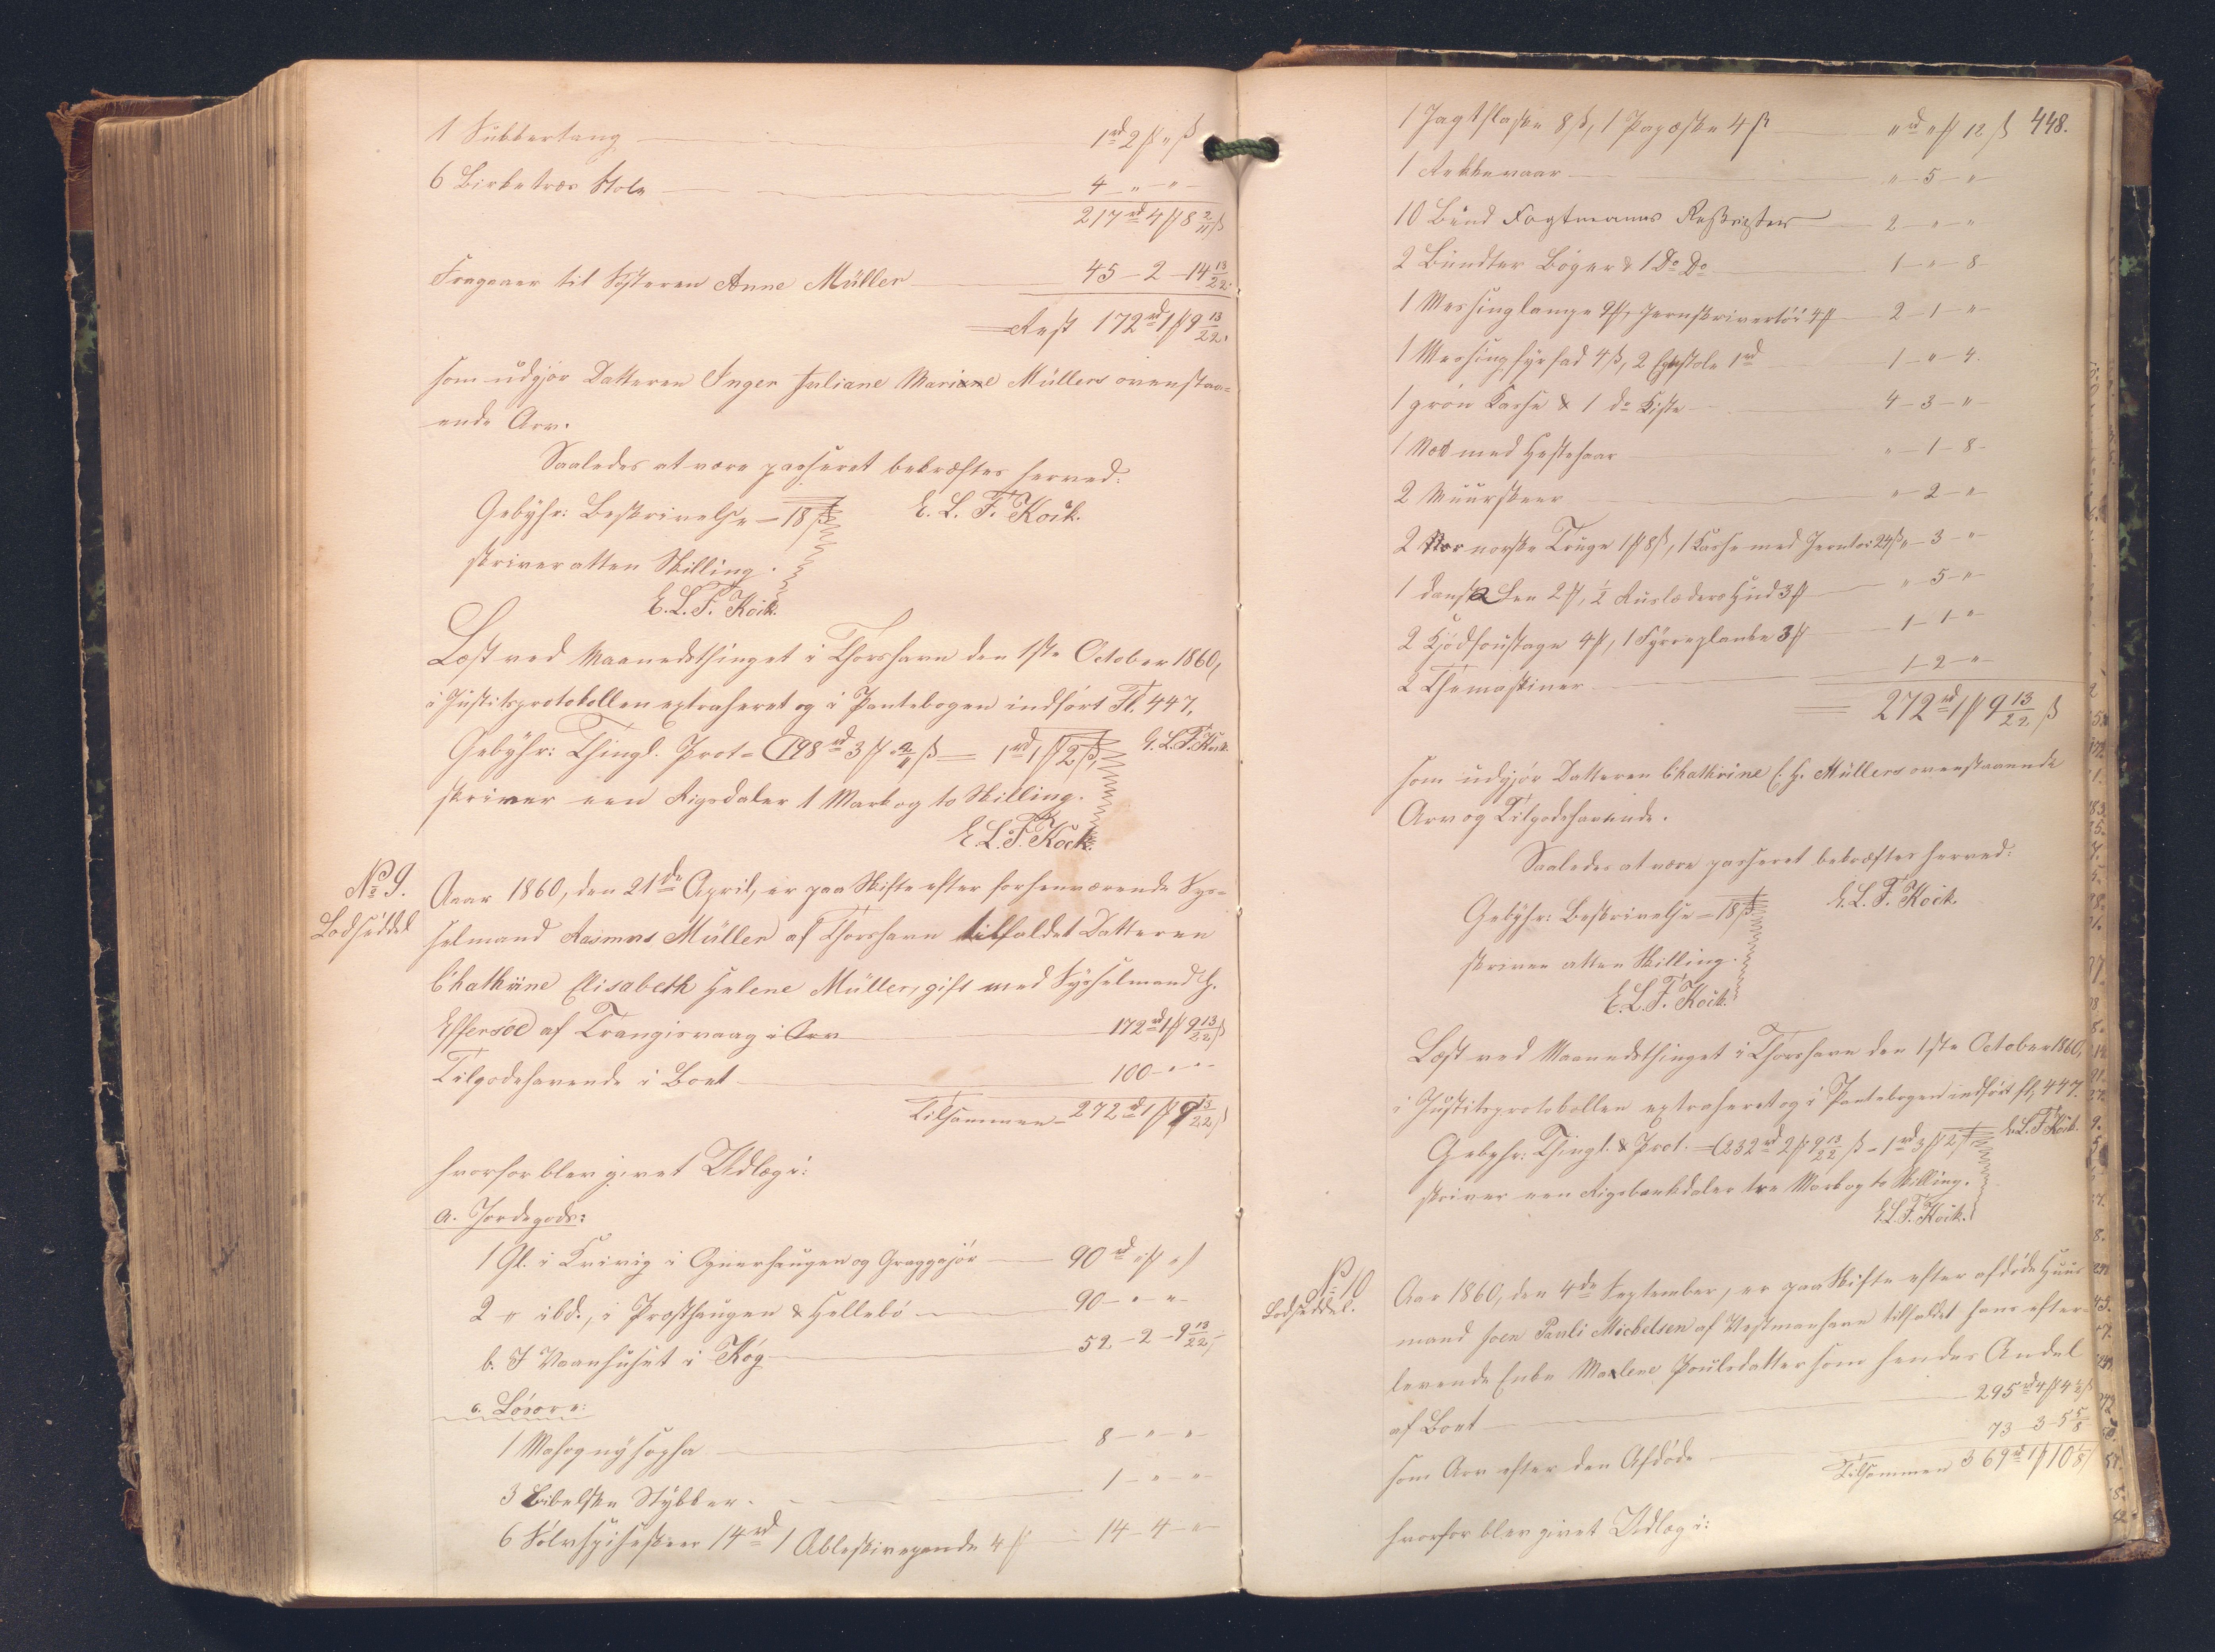 1 Sukkertang 1 rd 2 ß " ß
6 Birketræs Stole 4 - " - " -
217 rd 4 ß 8 2/11 ß
Fragaaer til Søsteren Anne Müller 45 - 2 - 14 13/22
Rest 172 rd 1 ß 9 13/22
som udgjør Datteren Inger Juliane Mariane Müllers ovenstaa=
ende Arv.
Saaledes at være passeret bekræftes herved.
Gebyhr: Beskrivelse = 18 ß E. L. F. Kock.
skriver atten Skilling.
E. L. F. Kock.
Læst ved Maanedsthinget i Thorshavn den 1ste October 1860,
i Justitsprotokollen extraheret og i Pantebogen indført Fl. 447.
Gebyhr: Thingl. Prot = 198 rd 3 ß 2/11 ß = 1 rd 1 ß 2 ß, E. L. F. Kock
skriver een Rigsdaler 1 Mark og to Skilling.
E. L. F. Kock.
No 9. Lodseddel
Aar 1860, den 21de April, er paa Skifte efter forhenværende Sys=
selmand Rasmus Müller af Thorshavn tilfaldet Datteren
Chathrine Elisabeth Helene Müller, gift med Sysselmand H.
Effersøe af Trangisvaag i Arv 172 rd 1 ß 9 13/22 ß
Tilgodehavende i Boet 100 - " - "
Tilsammen = 272 rd 1 ß 9 13/22 ß
hvorfor blev givet Udlæg i:
a. Jordegods:
1 Gl. i Kvivig i og 90 rd " ß " ß
2 " ibd., i Præsthaugen & Hellebö 90 - " - " -
b. I Vaanhuset i Kög 52 - 2 - 9 13/22
c. Lösöre:
1 Mahognysopha 8 - " - "
3 Bibelske Stykker 1 - " - "
6 Sølvspiseskeer 14 rd 1 Æbleskivepande 4 ß 14 - 4 - "
448.
1 Jagtflaske 8 ß, 1 Papæske 4 ß " rd " ß 12 ß
1 Rekkevaar " - 5 - "
10 Bind Fogtmanns Reskripter 2 - " - "
2 Bundter Bøger & 1 Do Do 1 - " - 8
1 Messinglampe 9 ß, Jernskrivertöi 4 ß 2 - 1 - "
1 Messing fyrfad 4 ß, 2 stole 1 rd 1 - " - 4.
1 grön Kasse & 1 do Kiste 4 - 3 - "
1 med Hestehaar " - 1 - 8 -
2 Muurskeer " - 2 - "
2 norske Truge 1 ß 8 ß, 1 Kasse med Jerntöi 24 ß " - 3 - "
1 dansk Len 2 ß, 1/2 Ruslæders Hud 3 ß " - 5 - "
2 Kjödfoustage 4 ß, 1 Fyrreplanke 3 ß 1 - 1 - "
2 Themaskiner 1 - 2 - "
272 rd 1 ß 9 13/22 ß
som udgjør Datteren Chathrine E. H. Müllers ovenstaaende
Arv og Tilgodehavende.
Saaledes at være passeret bekræftes herved.
Gebyhr: Beskrivelse = 18 ß E. L. F. Kock.
skriver atten Skilling.
E. L. F. Kock.
Læst ved Maanedsthinget i Thorshavn den 1ste October 1860,
i Justitsprotokollen extraheret og i Pantebogen indført fl. 447.
Gebyhr: Thingl. & Prot. = 232 rd 2 ß 9 13/22 ß = 1 rd 3 ß 2 ß E. L. F. Kock.
skriver een Rigsbankdaler tre Mark og to Skilling.
E. L. F. Kock.
No 10
Lodseddel.
Aar 1860, den 4de September, er paa Skifte efter afdøde Huus
mand Joen Pauli Michelsen af Vestmanhavn tilfaldet hans efter=
levende Enke Malene Poulsdatter som hendes Andel
af Boet 295 rd 4 ß 4 1/2 ß
som Arv efter den Afdøde 73 - 3 - 5 5/8
Tilsammen 369 rd 1 ß 10 1/8 ß
hvorfor blev givet Udlæg i: